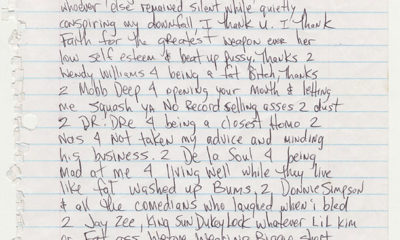 whoever else remained silent while quietly
conspiring my downfall I thank U. I Thank
Faith for the greatest weapon ever her
low self esteem & beat up pussy. Thanks 2
Wendy Williams 4 being a fat Bitch, Thanks
2 Mobb Deep 4 opening your mouth & letting
me squash ya No Record selling asses 2 dust
2 DR. DRe 4 being a closest Homo 2
Nas 4 Not taken my advice and minding
his business. 2 De la Soul 4 being
mad at me 4 living well while they live
like fat washed up Bums, 2 Donnie Simpson
& all the comedians who laughed when i bled
2 Jay Zee, King Sun Dukey Lock whatever Lil Kim
or Fat ass Wearing short